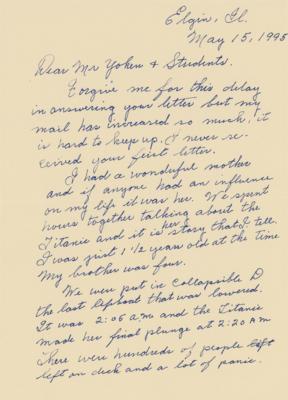 Elgin, Il.
May 15, 1995
Dear Mr Yoken & Students.
Forgive me for this delay
in answering your letter but my
mail has increased so much, it
is hard to keep up. I never re-
ceived your first letter.
I had a wonderful mother
and if anyone had an influence
on my life it was her. We spent
hours together talking about the
Titanic and it is her story that I tell.
I was just 1 1/2 years old at the time
My brother was four.
We were put in Collapsible D
the last lifeboat that was lowered.
It was 2:05 am and the Titanic
made her final plunge at 2:20 AM
There were hundreds of people left
left on deck and a lot of panic.